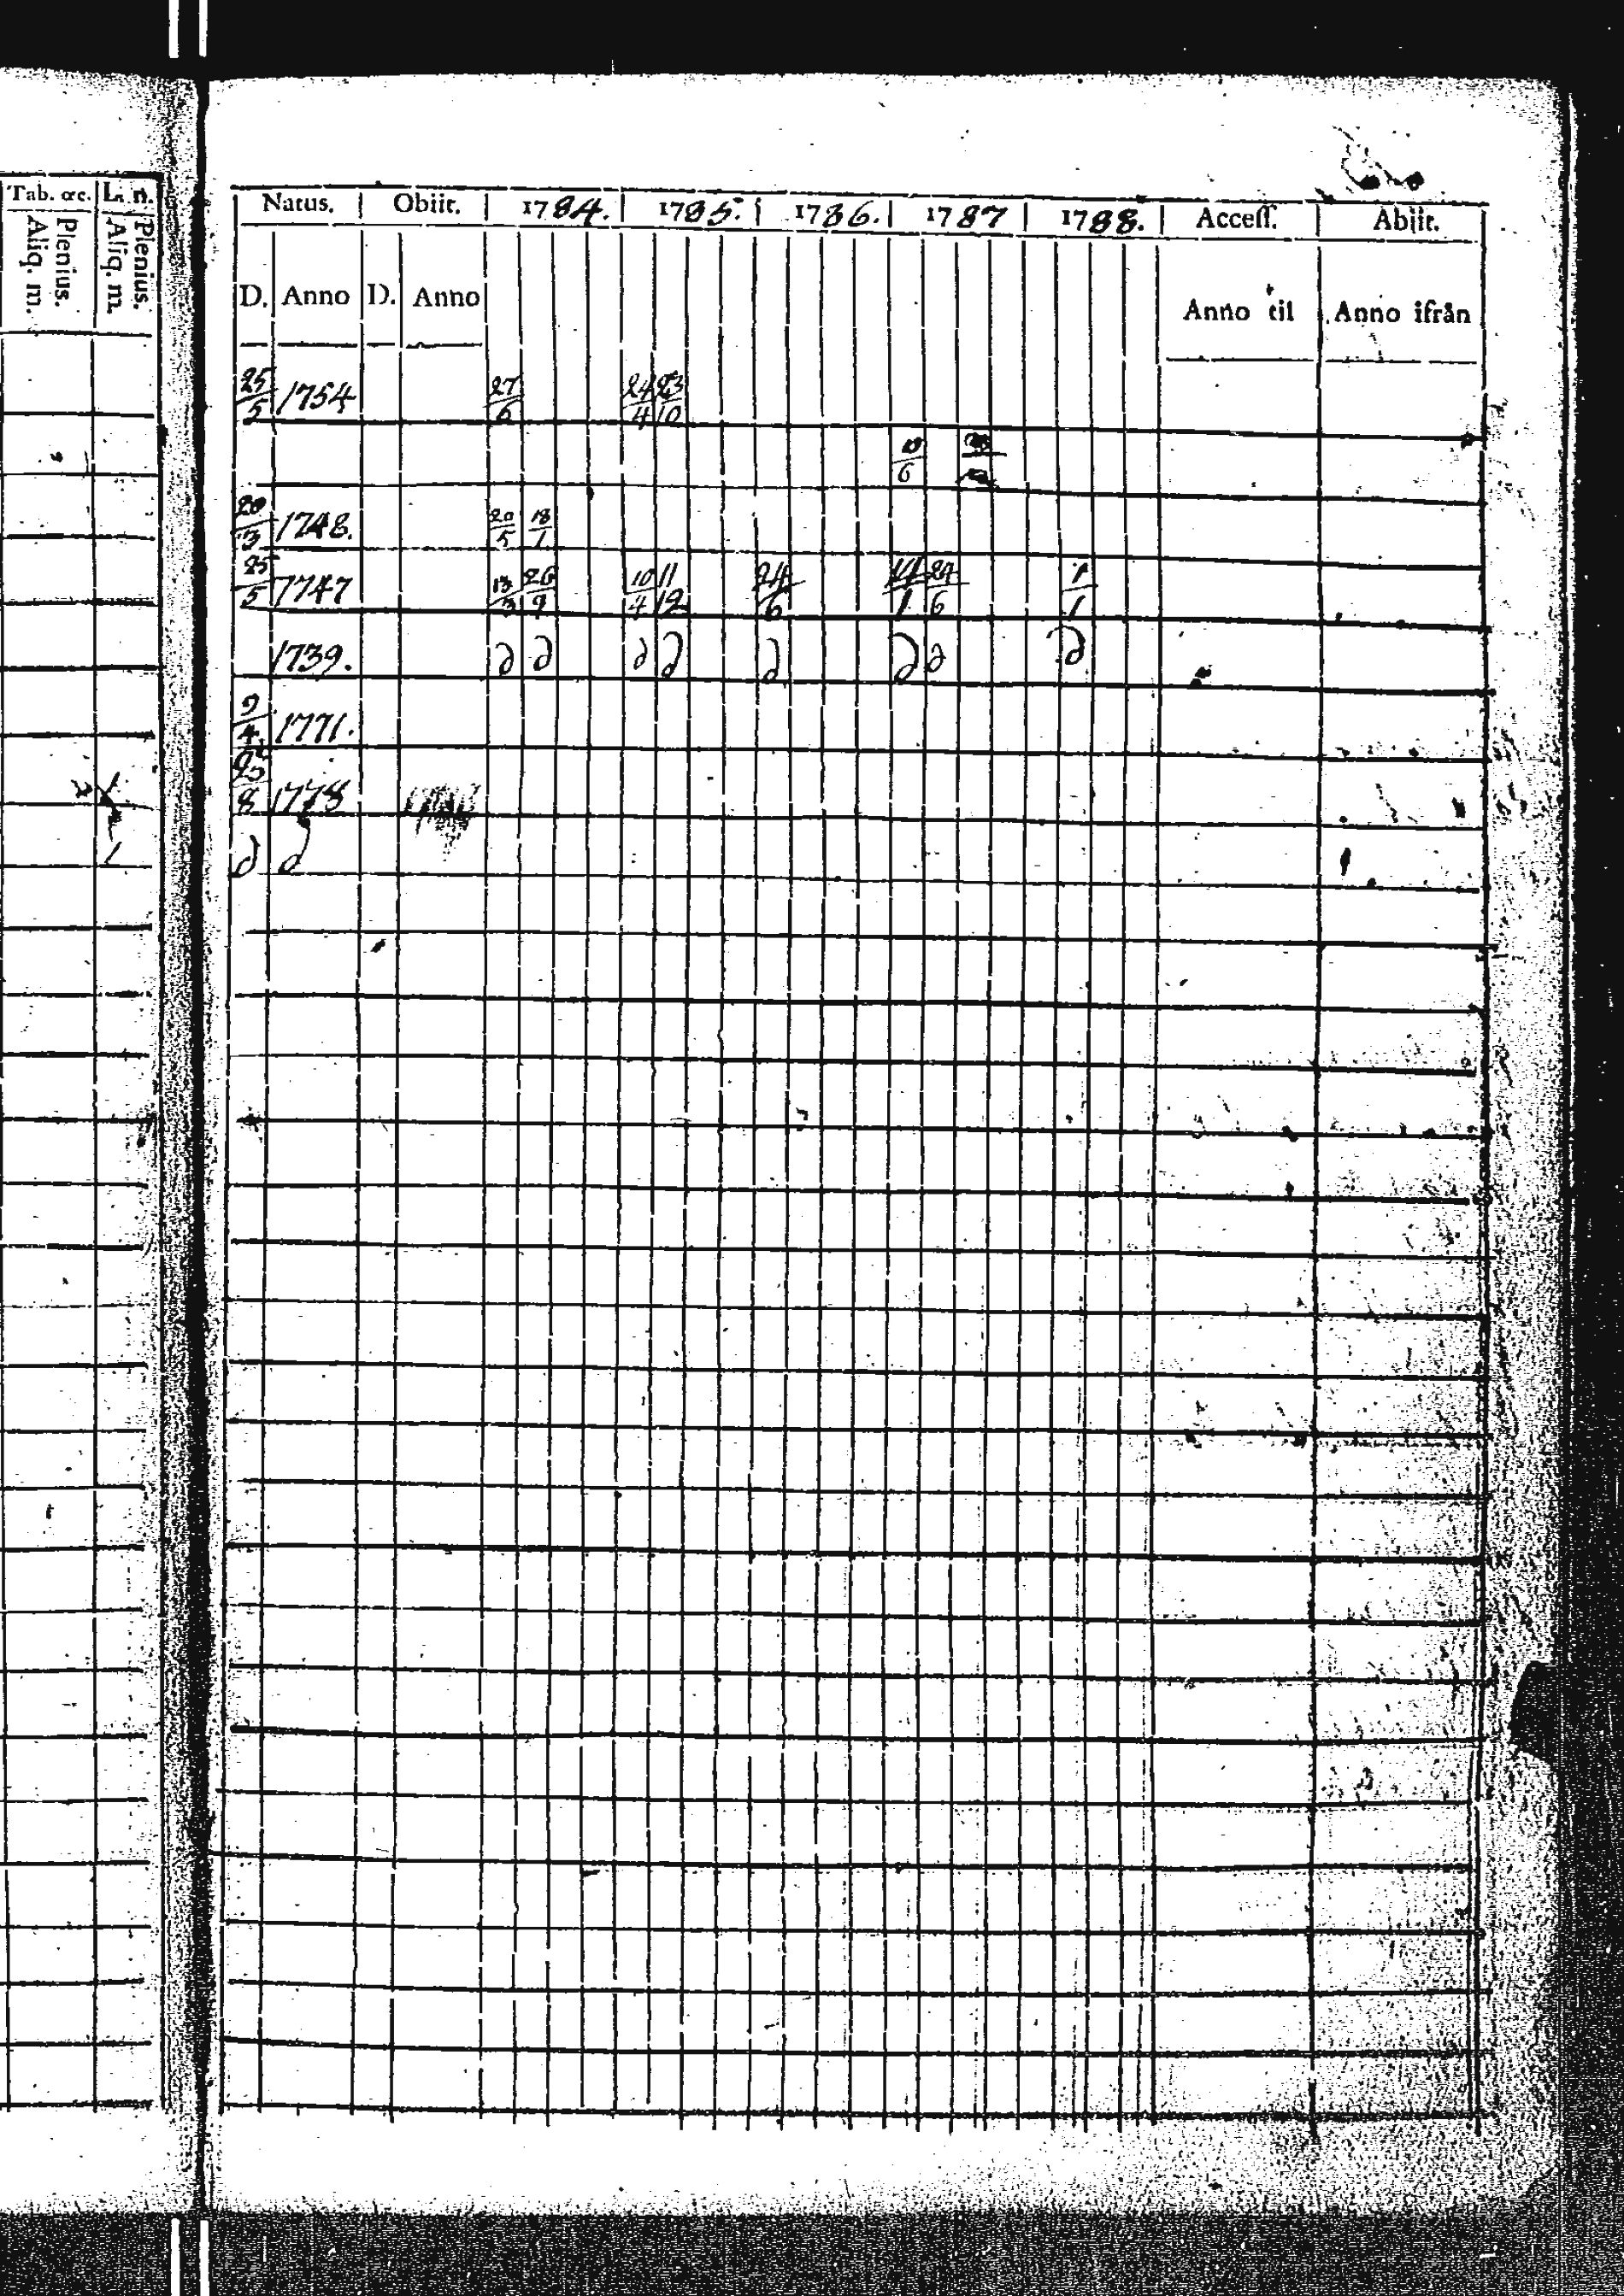 Tab. œc. L. n.
Plenius. Aliq. m. Plenius. Aliq. m.
Natus. Obiit. 1784. 1785. 1786. 1787 1788. Access. Abiit.
D. Anno D. Anno Anno til Anno ifrån
25/5 1754 27/6 24/4 23/10
10/6
20/3 1748. 20/5 18/1
25/5 1747 13/3 26/9 10/4 11/12 24/6 14/1 24/6 1/1
1739. ∂ ∂ ∂ ∂ ∂ ∂ ∂ ∂
9/4 1771.
25/8 1778
∂ ∂